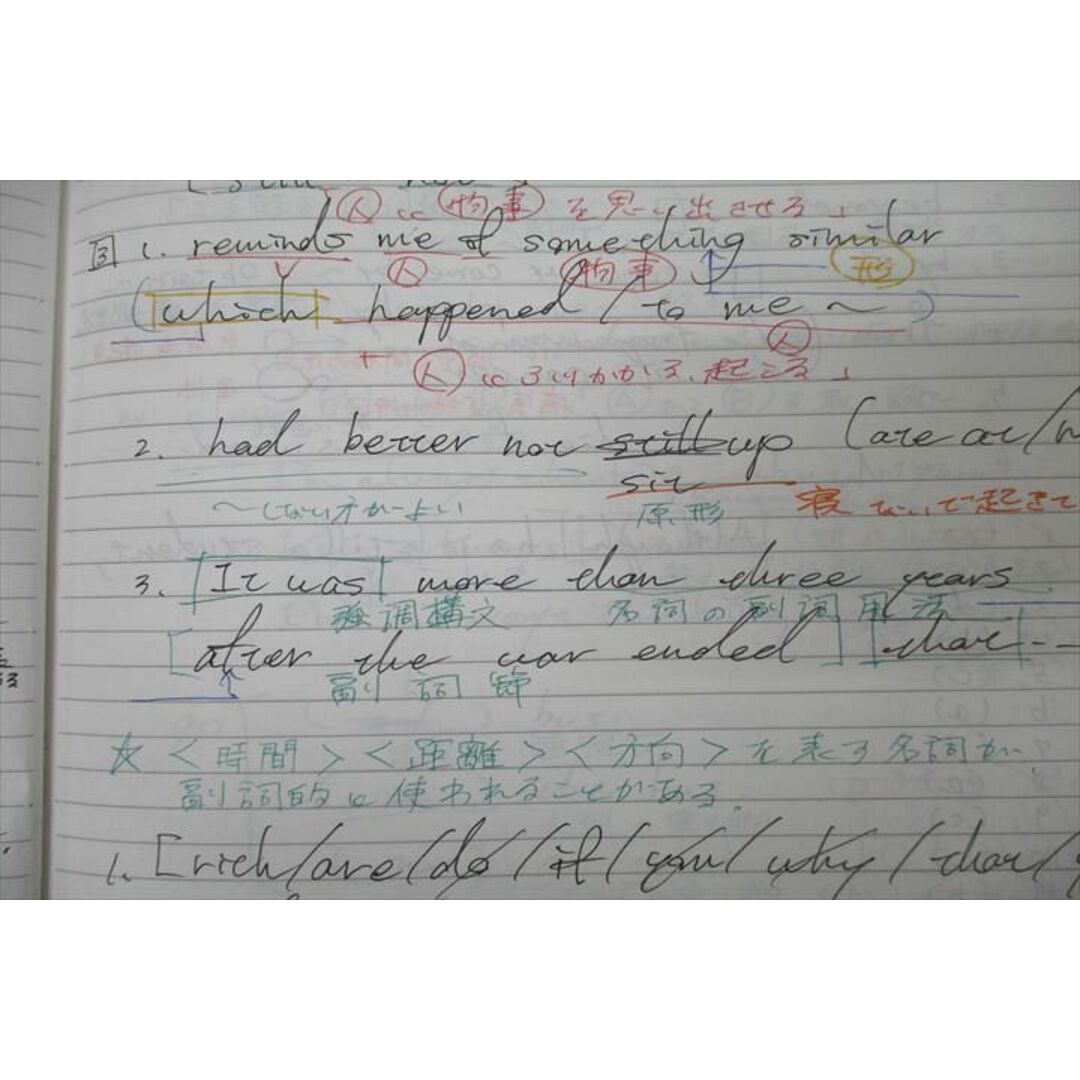 人に物事を思い出させる」
③ 1. reminds me of something similar
V 人 物事 形
(which happened / to me ~)
人
人にふりかかる、起こる」
2. had better not still up (are at/
sit
~しない方がよい 原形 寝ないで起きて
3. It was more than three years
強調構文 名詞の副詞用法
[after the war ended] [that --
副詞節
☆ <時間> <距離> <方向> を表す名詞が、
副詞的に使われることがある.
1. [rich/are/do/if/you/why/that/